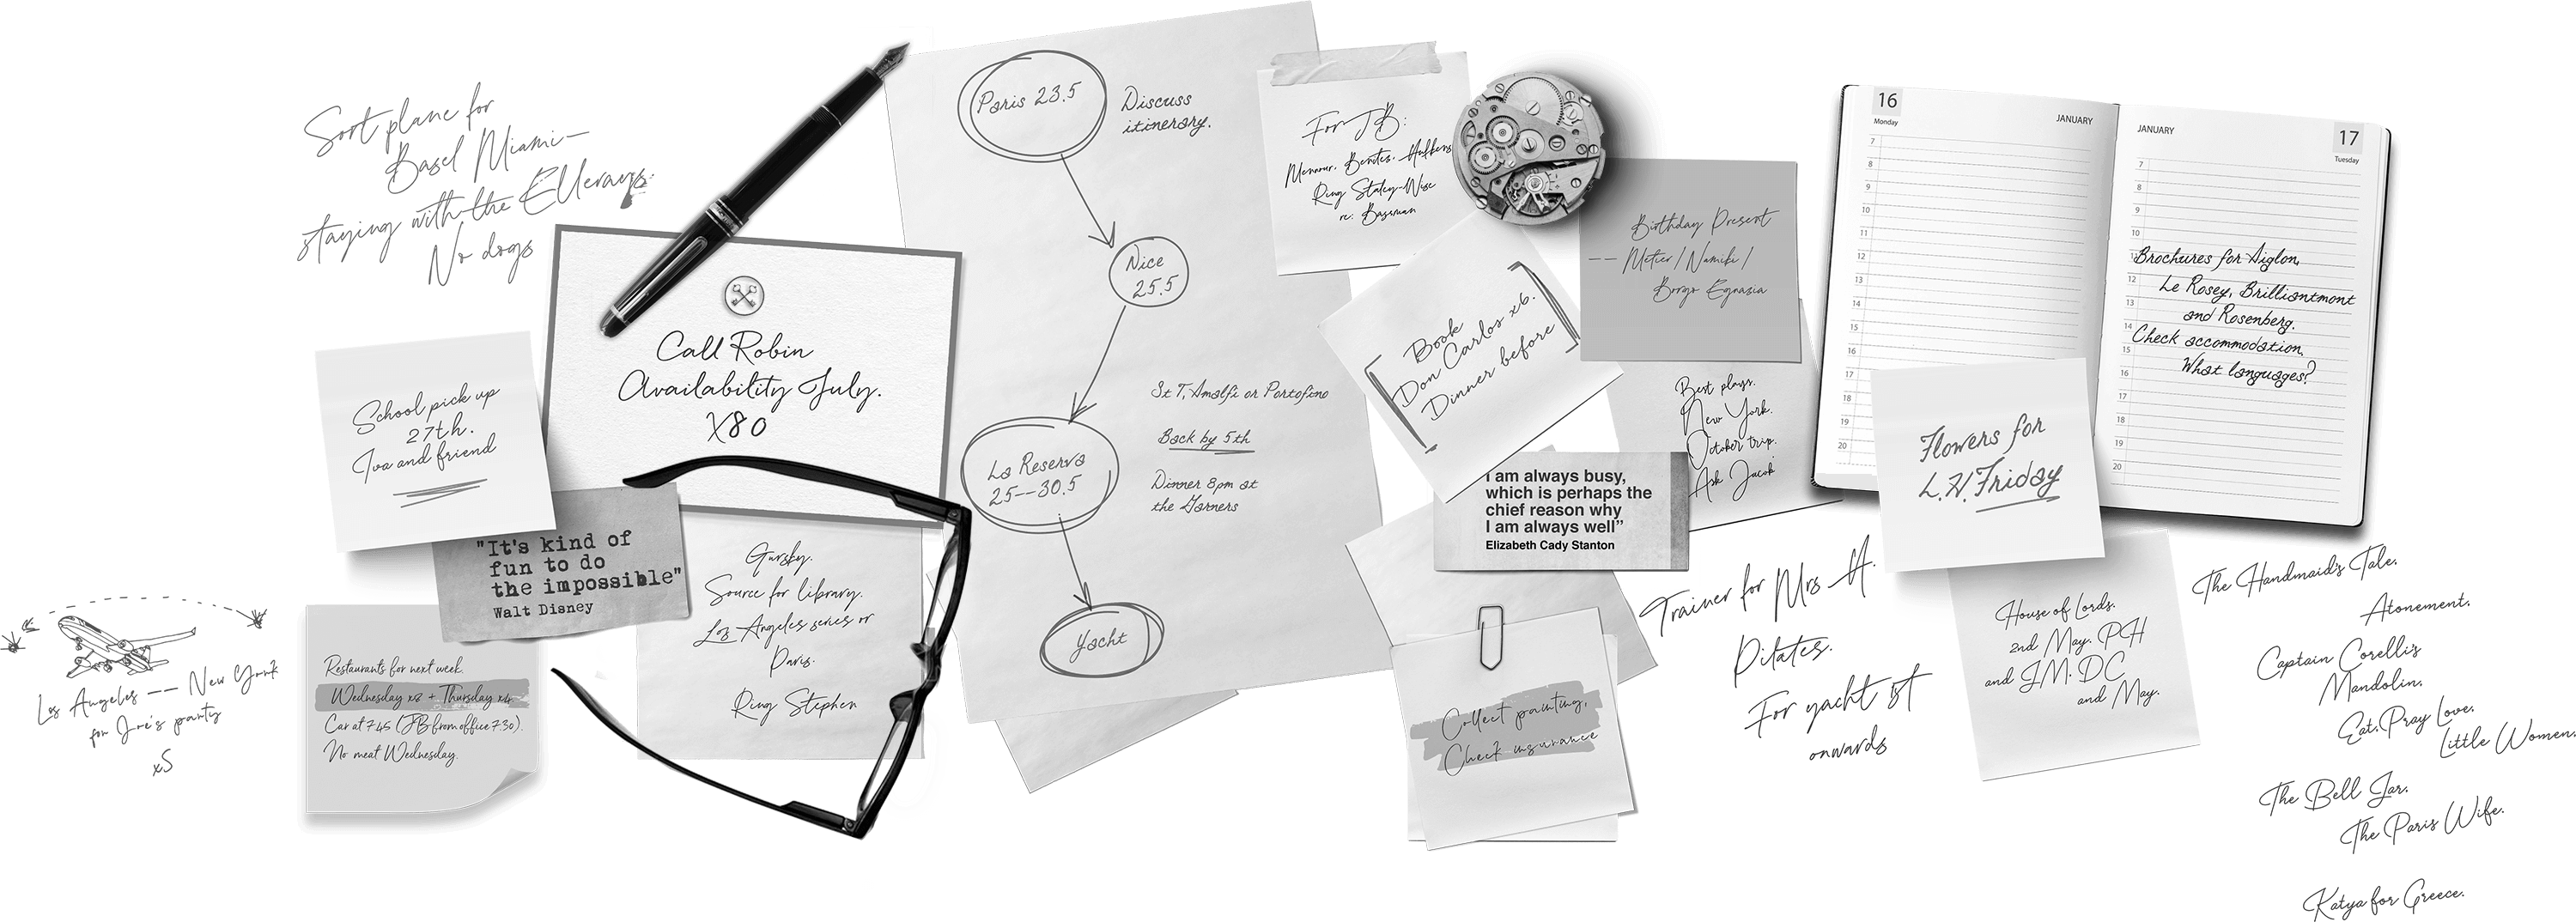 Sort plane for
Basel Miami –
staying with the Ellerays.
No dogs
School pick up
27th.
Iva and friend
Los Angeles –– New York
for Joe's party
x5
Call Robin
Availability July.
X80
"It's kind of
fun to do
the impossible"
Walt Disney
Restaurants for next week.
Wednesday x8 + Thursday x4
Car at 745 (JB from office 7.30).
No meat Wednesday.
Gursky.
Source for library.
Los Angeles series or
Paris.
Ring Stephen
Paris 23.5
Discuss
itinerary.
Nice
25.5
St T, Amalfi or Portofino
Back by 5th
La Reserva
25––30.5
Dinner 8pm at
the Garners
Yacht
For JB:
Mennour, Benítes, Hufkens
Ring Staley-Wise
re: Bassman
Book
Don Carlos x6.
Dinner before
Birthday Present
–– Métier / Namiki /
Borgo Egnazia
Best plays.
New York.
October trip.
Ask Jacob
I am always busy,
which is perhaps the
chief reason why
I am always well”
Elizabeth Cady Stanton
Collect painting,
Check insurance
Trainer for Mrs H.
Pilates.
For yacht 1st
onwards
16
Monday
JANUARY
7
8
9
10
11
12
13
14
15
16
17
18
19
20
JANUARY
17
Tuesday
7
8
9
10
Brochures for Aiglon,
12
Le Rosey, Brilliantmont
13
and Rosenberg.
14
Check accommodation,
15
What languages?
16
17
18
19
20
Flowers for
L.H. Friday
House of Lords.
2nd May. PH
and JM. DC
and May.
The Handmaid's Tale.
Atonement.
Captain Corelli's
Mandolin.
Eat, Pray Love.
Little Women.
The Bell Jar.
The Paris Wife.
Katya for Greece.